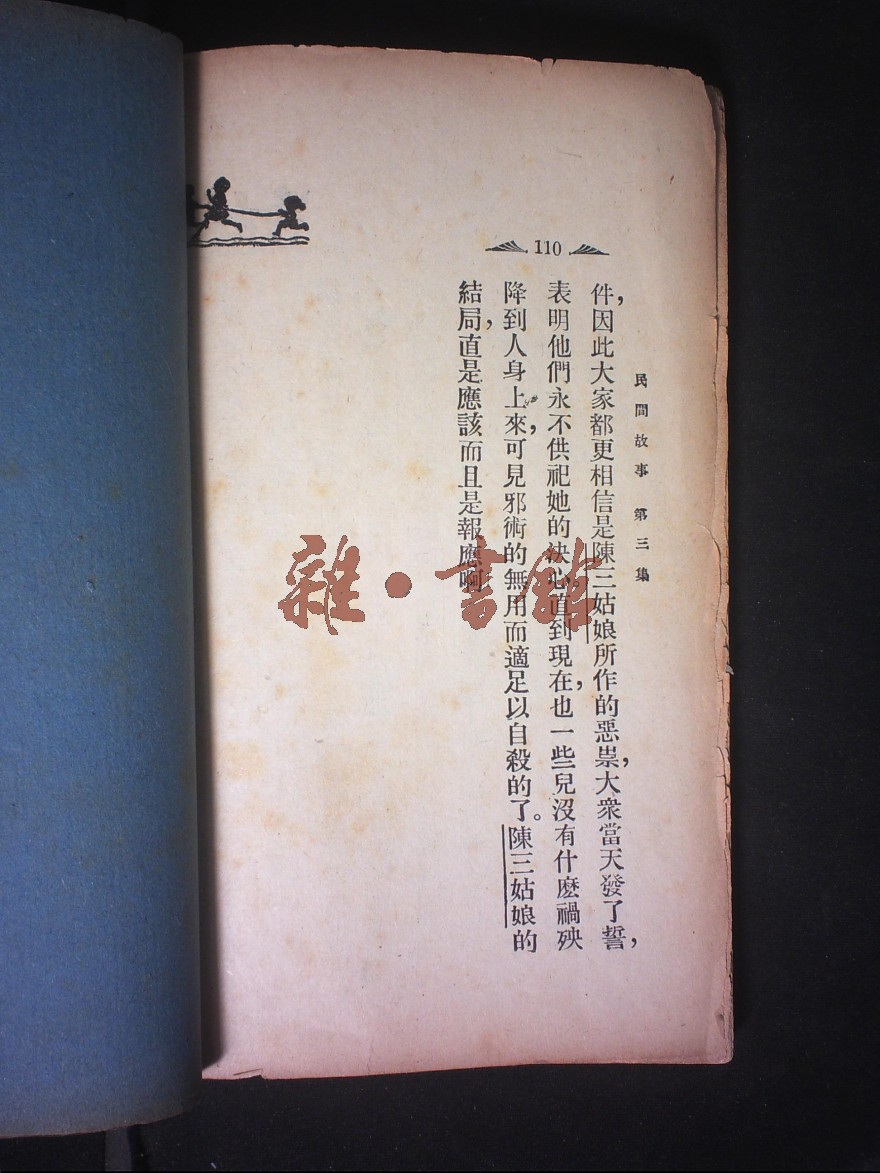 110
民間故事 第三集
件,因此大家都更相信是陳三姑娘所作的惡祟,大衆當天發了誓,
表明他們永不供祀她的決心。直到現在,也一些兒沒有什麽禍殃
降到人身上來,可見邪術的無用而適足以自殺的了。陳三姑娘的
結局,直是應該而且是報應啊
雜·書館